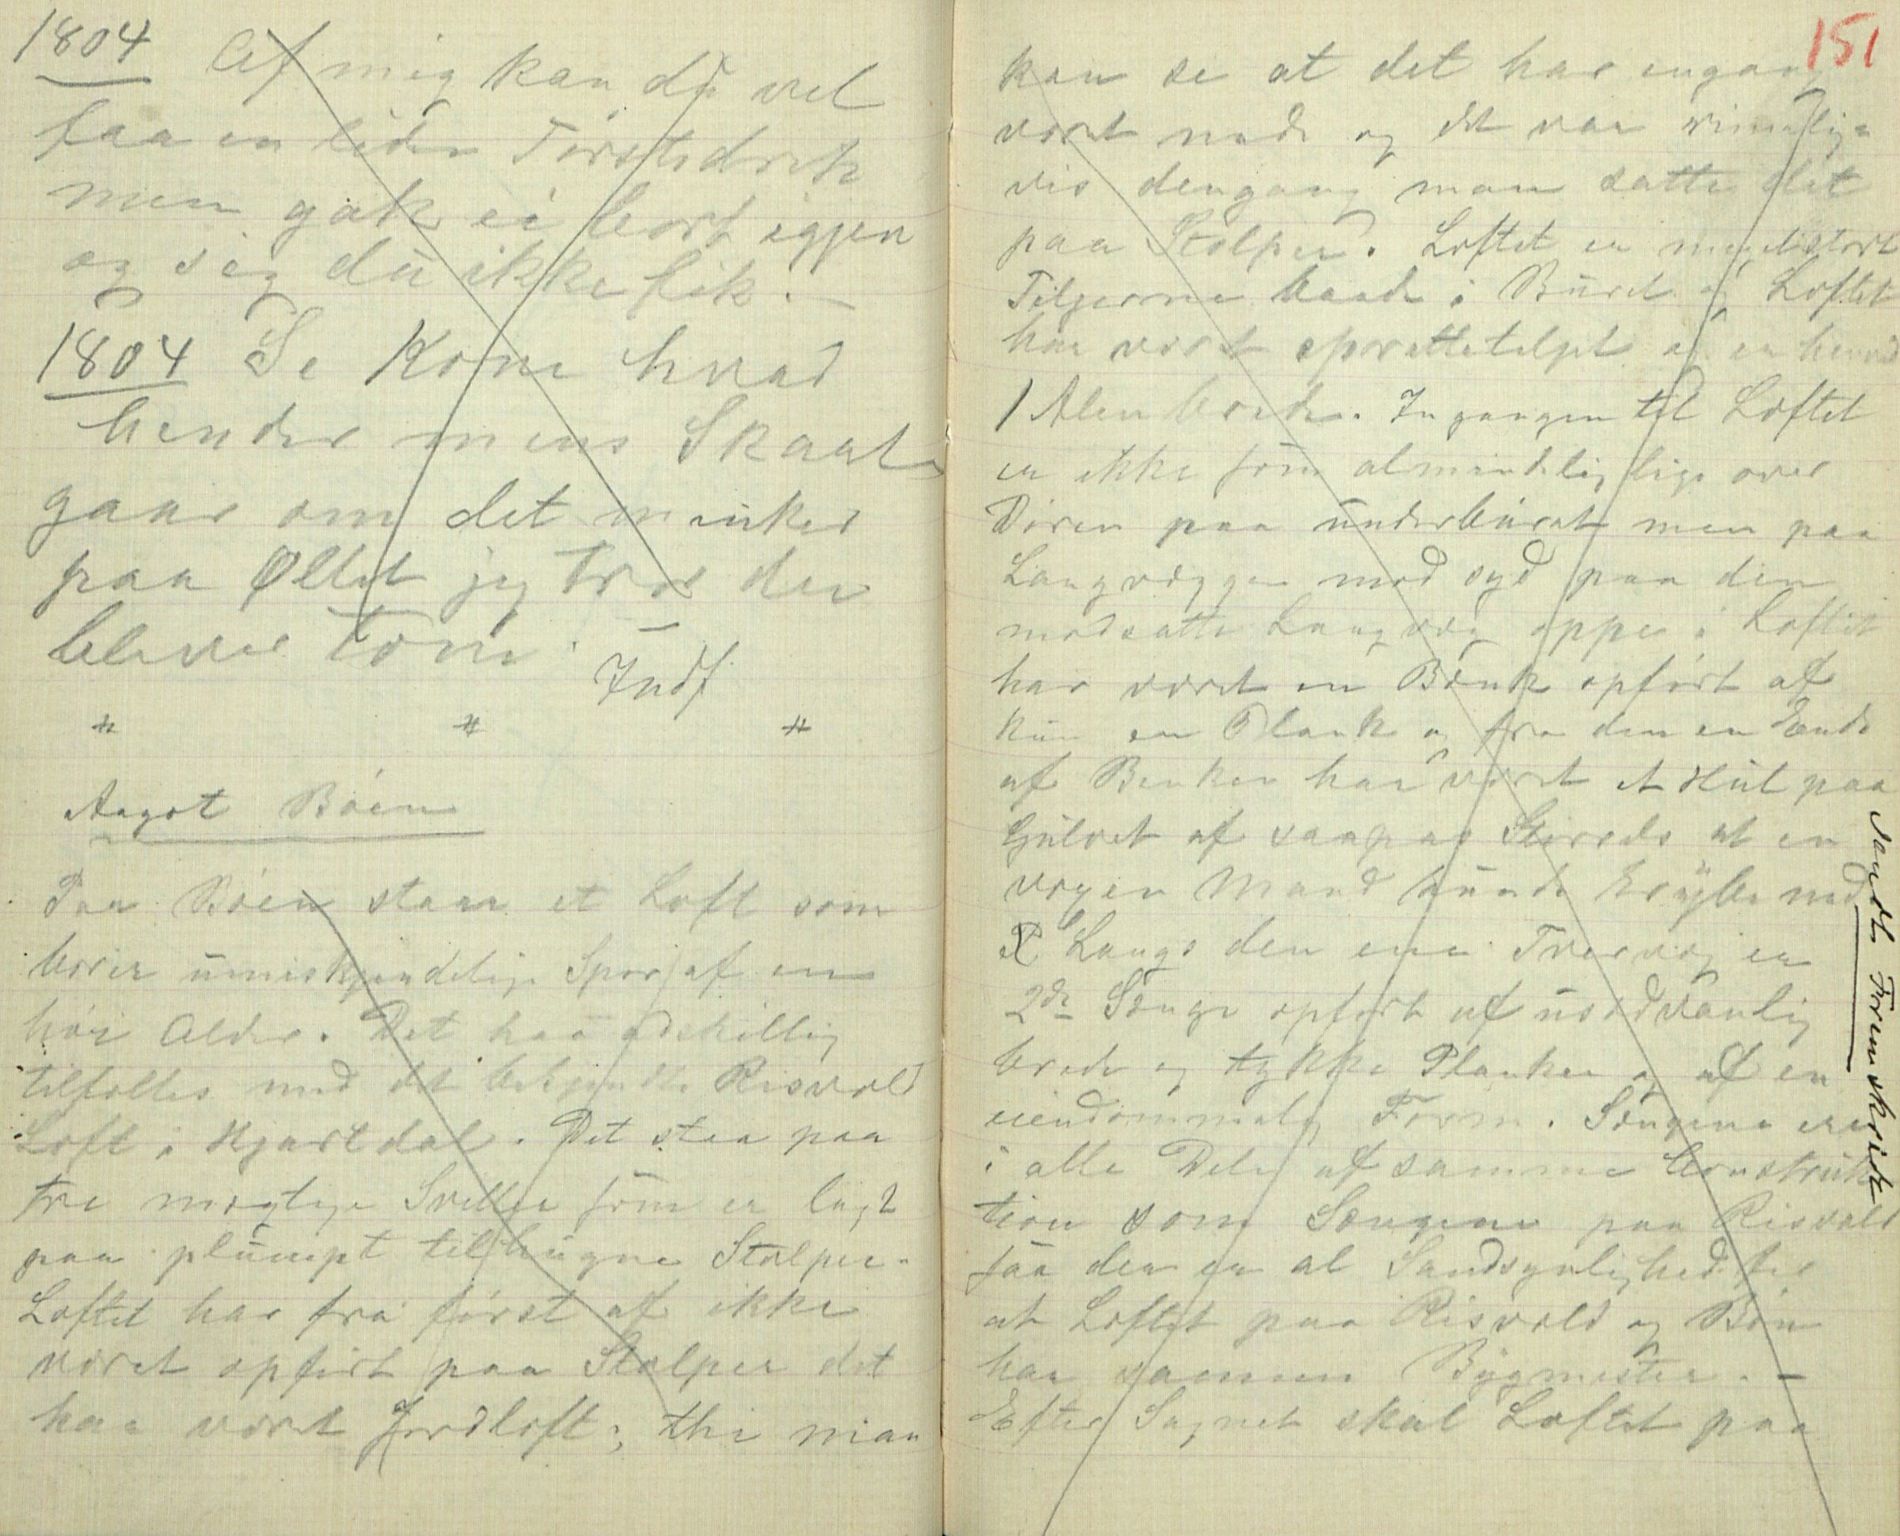 1804 Af mig kan du vel
faa en liden Tørstedrik
men gak ei bort igjen
og sig du ikke fik. —
1804 Se Kone hvad
hender mens Skaale
gaar om det minker
paa Øllet jeg tror den
bliver tom. —
Indf.
" " "
Aagot Bøen
Paa Bøen staar et Loft som
bærer umiskjendelige Spor af en
høi Alder. Det har adskillig
tilfælles med det bekjendte Risvold
Loft i Hjartdal. Det staa paa
tre mægtige Sviller som er lagt
paa plumpt tilhugne Stolper.
Loftet har fra først af ikke
været opført paa Stolper det
har været Jordloft; thi man
151
kan se at det har engang
været nede og det var rimelig-
vis dengang man satte det
paa Stolper. Loftet er meget stort
Tilgerne baade i Buret og Loftet
har været sprættetelgt og er henved
1 Alen brede. Ingangen til Loftet
er ikke som almindelig lige over
Døren paa underburet men paa
Langvæggen mod syd paa den
modsatte Langvæg oppe i Loftet
har været en Bænk opført af
kun en Plank og fra den en Ende
af Benken har været et Hul paa
Gulvet af saapas Størrelse at en
vogen Mand kunde krybe ned
Langs den ene Tvervæg er
2de Senge opført af usedvanlig
brede og tykke Planker og af en
eiendommelig Form. Sengene er
i alle Dele af samme Construk
tion som Sengene paa Risvold
saa der er al Sandsynlighed for
at Loftet paa Risvold og Bøen
har samme Bygmester. —
Efter Sagnet skal Loftet paa
Sandt Fremskridt